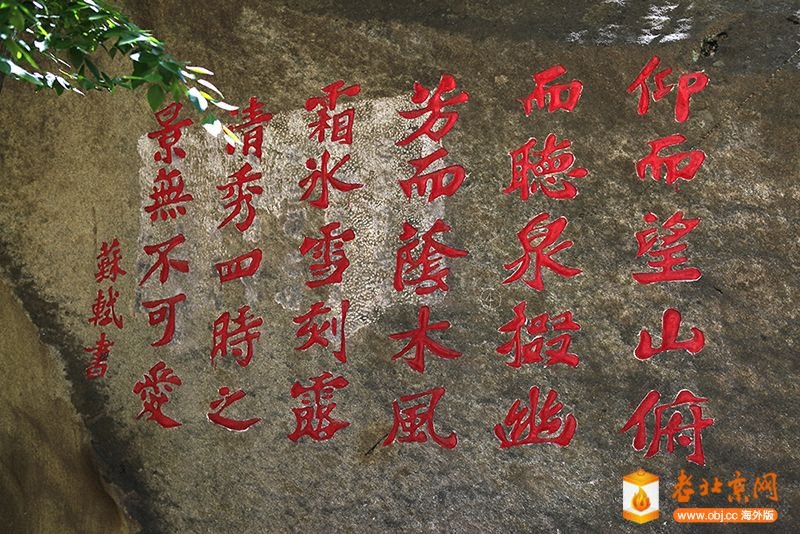 仰而望山俯
而聽泉掇幽
芳而蔭木風
霜氷雪刻露
清秀四時之
景無不可愛
蘇軾書
老北京网
www.obj.cc 海外版